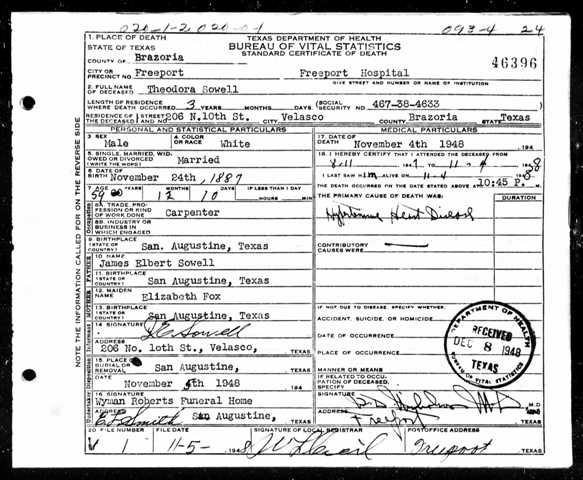 020-1-2,020-04
093-4 24
1. PLACE OF DEATH
STATE OF TEXAS
TEXAS DEPARTMENT OF HEALTH
BUREAU OF VITAL STATISTICS
STANDARD CERTIFICATE OF DEATH
COUNTY OF Brazoria
46396
CITY OR PRECINCT NO. Freeport
Freeport Hospital
GIVE STREET AND NUMBER OR NAME OF INSTITUTION
2. FULL NAME OF DECEASED Theodora Sowell
LENGTH OF RESIDENCE WHERE DEATH OCCURRED 3 YEARS MONTHS DAYS (SOCIAL SECURITY NO. 467-38-4633
RESIDENCE OF THE DECEASED STREET NO. 206 N.10th St. Velasco COUNTY Brazoria STATE Texas
PERSONAL AND STATISTICAL PARTICULARS
MEDICAL PARTICULARS
3. SEX Male
4. COLOR OR RACE White
17. DATE OF DEATH November 4th 1948 194
5. SINGLE, MARRIED, WIDOWED OR DIVORCED (WRITE THE WORD) Married
18. I HEREBY CERTIFY THAT I ATTENDED THE DECEASED FROM
TO 11-4 1948
6. DATE OF BIRTH November 24th, 1887
I LAST SAW him ALIVE ON 11-4 1948
THE DEATH OCCURRED ON THE DATE STATED ABOVE AT 10:45 P. M.
7. AGE YEARS MONTHS DAYS IF LESS THAN 1 DAY
59 12 10 HOURS MIN
THE PRIMARY CAUSE OF DEATH WAS: DURATION
8A. TRADE, PROFESSION OR KIND OF WORK DONE Carpenter
Heart Disease
8B. INDUSTRY OR BUSINESS IN WHICH ENGAGED
9. BIRTHPLACE (STATE OR COUNTRY) San. Augustine, Texas
CONTRIBUTORY CAUSES WERE:
10. NAME
James Elbert Sowell
11. BIRTHPLACE (STATE OR COUNTRY) San Augustine, Texas
12. MAIDEN NAME Elizabeth Fox
13. BIRTHPLACE (STATE OR COUNTRY) San Augustine, Texas
IF NOT DUE TO DISEASE, SPECIFY WHETHER:
ACCIDENT, SUICIDE, OR HOMICIDE
14. SIGNATURE J E Sowell
DATE OF OCCURRENCE
ADDRESS 206 No. 10th St., Velasco, TEXAS
PLACE OF OCCURRENCE
15. PLACE OF BURIAL OR REMOVAL San Augustine, TEXAS
MANNER OR MEANS
DATE November 5th 1948
IF RELATED TO OCCUPATION OF DECEASED, SPECIFY
16. SIGNATURE
Wyman Roberts Funeral Home
SIGNATURE M.D.
ADDRESS San Augustine, TEXAS
E J Smith
Freeport TEXAS
20. FILE NUMBER FILE DATE SIGNATURE OF LOCAL REGISTRAR POSTOFFICE ADDRESS
V 1 11-5- 1948 Freeport TEXAS
DEPARTMENT OF HEALTH
RECEIVED
DEC 8 1948
TEXAS
BUREAU VITAL STATISTICS
NOTE THE INFORMATION CALLED FOR ON THE REVERSE SIDE
Occupation
FATHER
MOTHER
Informant